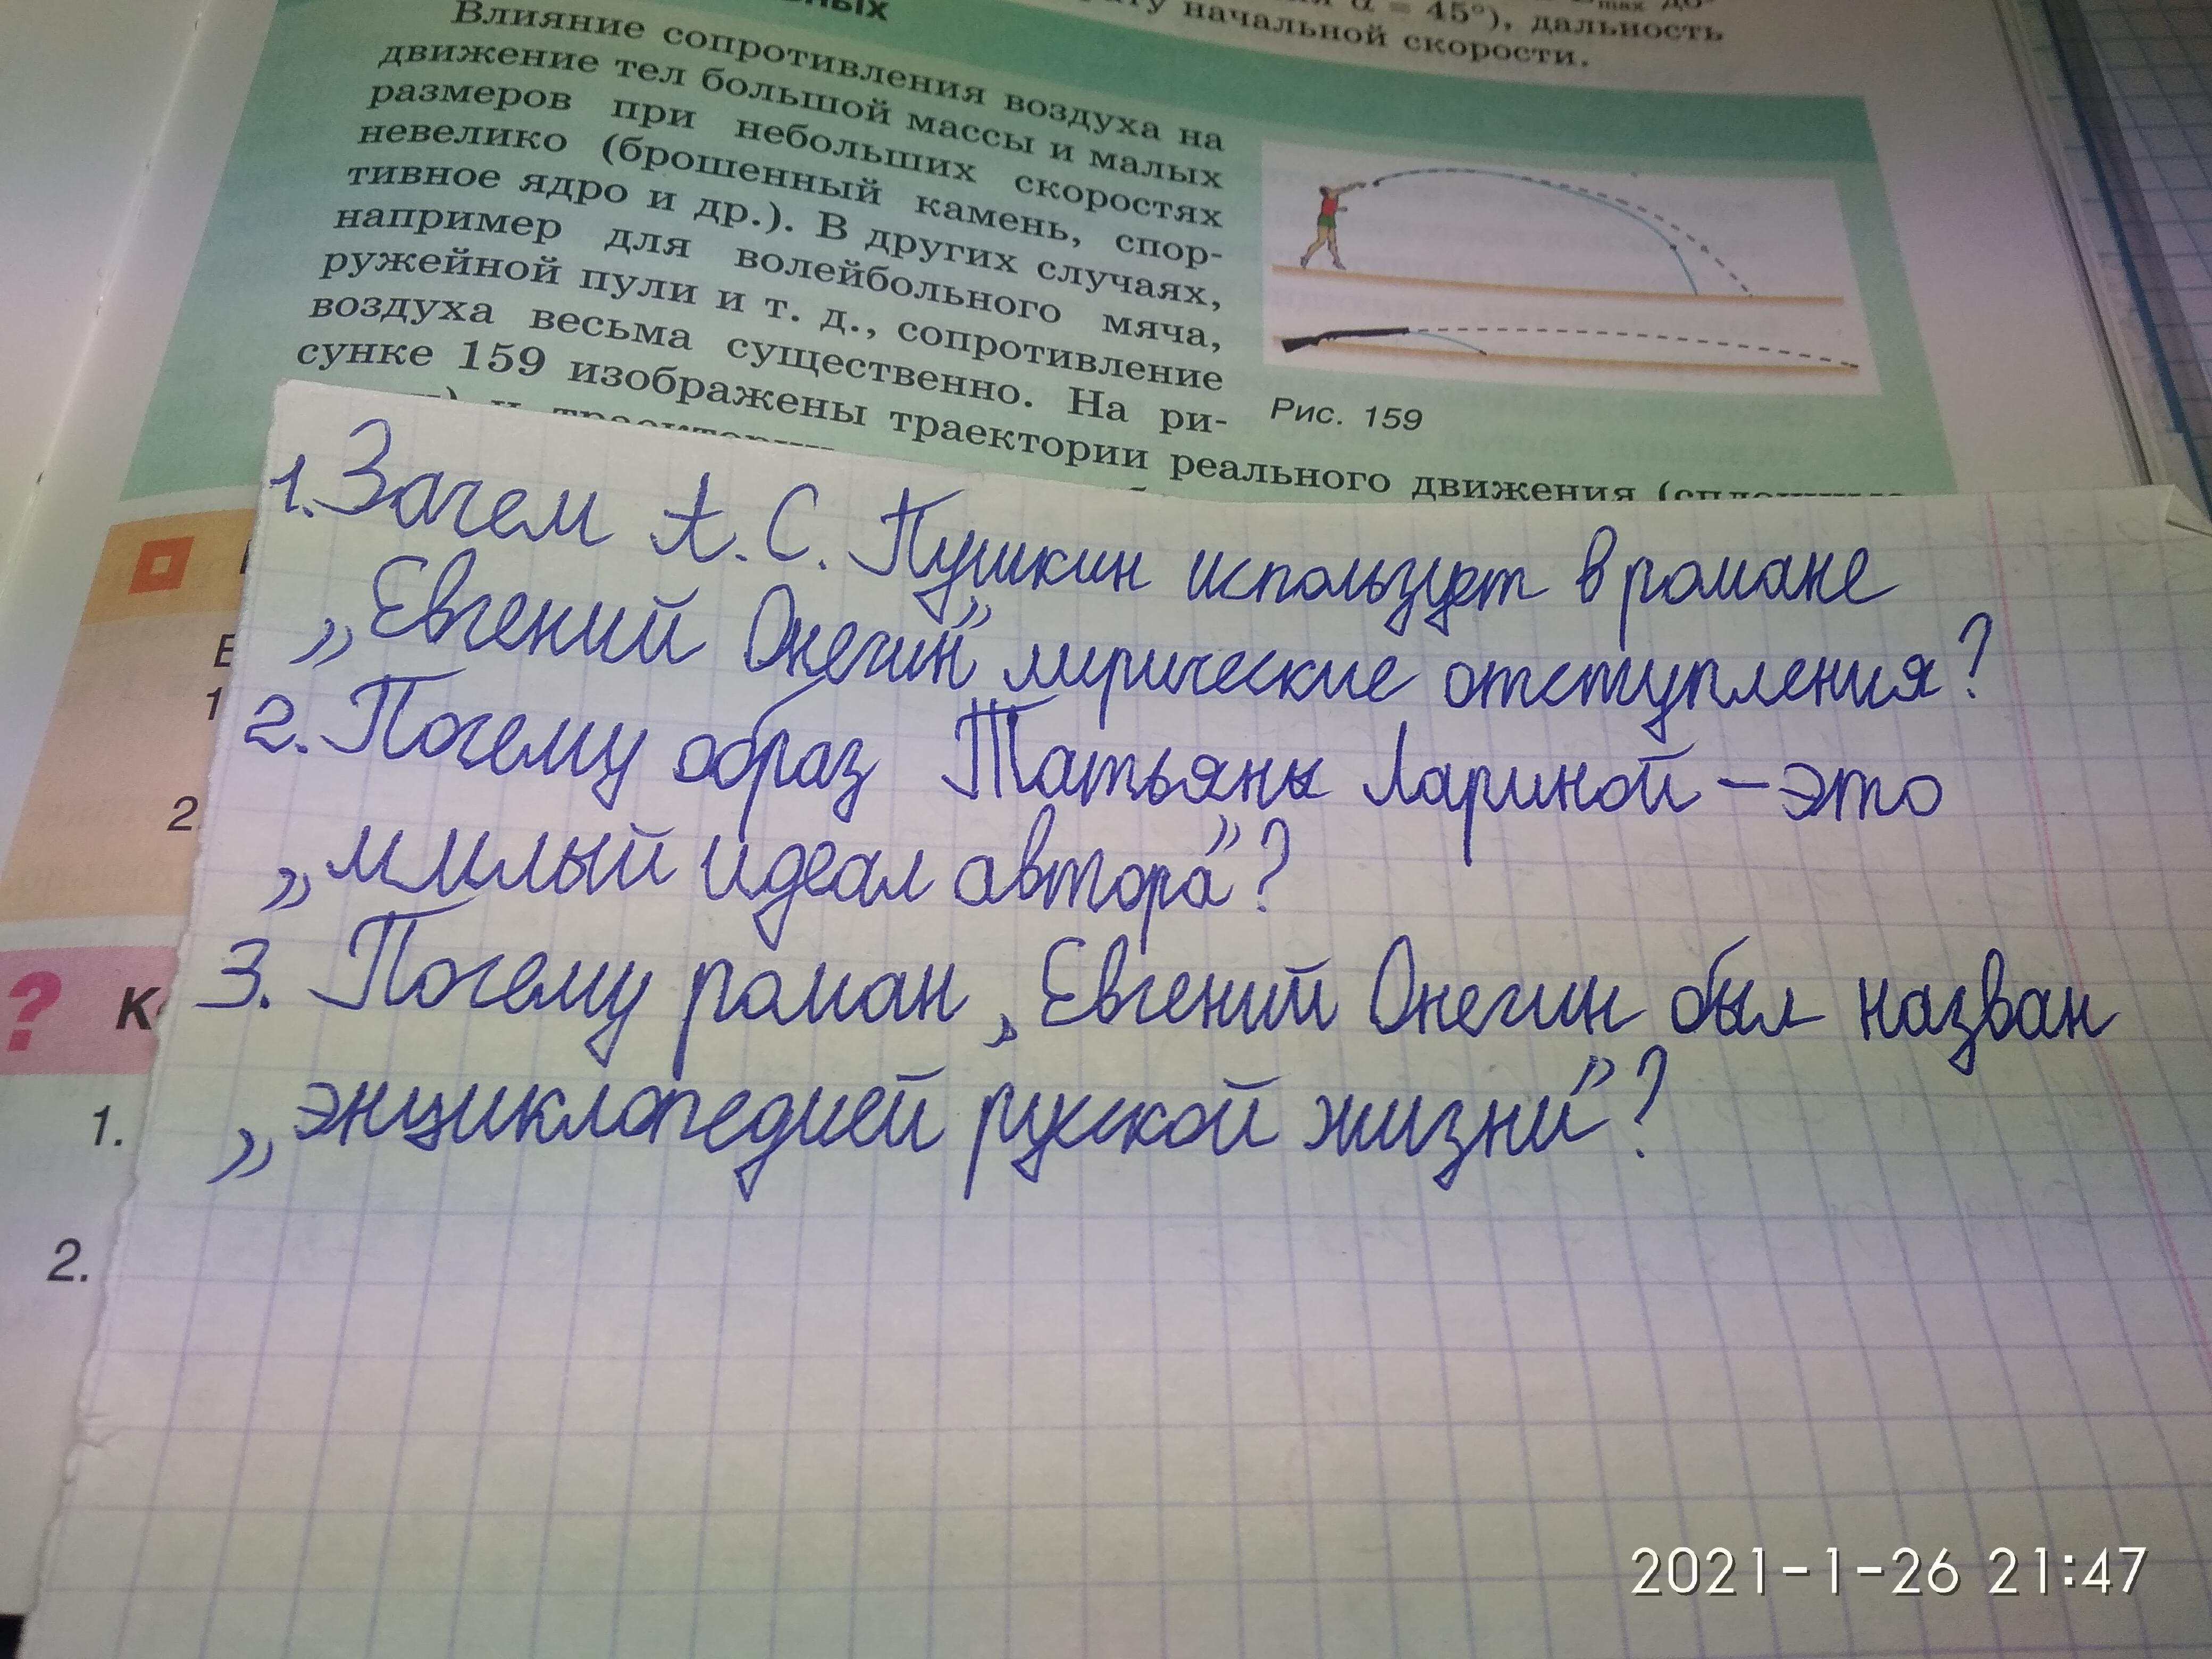 α = 45°), дальность
начальной скорости.
Влияние сопротивления воздуха на
движение тел большой массы и малых
размеров при небольших скоростях
невелико (брошенный камень, спор-
тивное ядро и др.). В других случаях,
например для волейбольного мяча,
ружейной пули и т. д., сопротивление
воздуха весьма существенно. На ри-
сунке 159 изображены траектории реального движения
Рис. 159
1. Зачем А. С. Пушкин использует в романе
„Евгений Онегин” лирические отступления?
2. Почему образ Татьяны Лариной – это
„милый идеал автора”?
3. Почему роман „Евгений Онегин был назван
„энциклопедией русской жизни”?
1
2.
?
1.
2.
2021-1-26 21:47